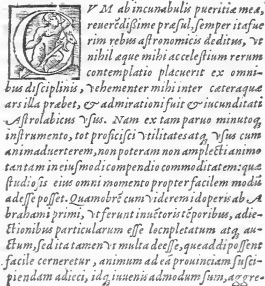 CVM ab incunabulis pueritiæ meæ,
reuerẽdißime præsul, semper ita fue
rim rebus astronomicis deditus, vt
nihil æque mihi ac cælestium rerum
contemplatio placuerit ex omni-
bus disciplinis, vehementer mihi inter cæteraquæ
ars illa præbet, & admirationi fuit & iucunditati
Astrolabicus vsus. Nam ex tam paruo minutoq;
instrumento, tot proficisci vtilitates atq; vsus cum
animaduerterem, non poteram non amplecti animo
tantam in eiusmodi compendio commoditatem: quæ
studiosis eius omni momento propter facilem modũ
adesse posset. Quamobrẽ cum viderem id operis ab A
brahami primi, vt ferunt inuẽtoris tẽporibus, adie-
ctionibus particularum esse locupletatum atq; au-
ctum, sed ita tamen vt multa deesse, quæ addi possent
facile cerneretur, animum ad eã prouinciam susci-
piendam adieci, idq; iuuenis admodum sum, aggre-